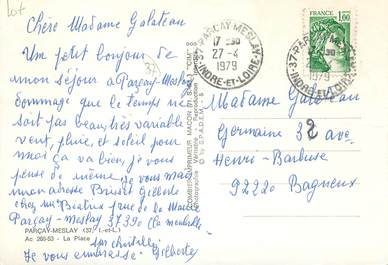 Lot
Chère Madame Galateau
Un petit bonjour de
mon séjour à Parçay-Meslay
dommage que le temps ne
soit pas beau, très variable
vent, pluie, et soleil pour
moi ça va bien, je vous
pense de même, je vous mets
mon adresse Gilberte
chez Mme Béatrix rue de la Mairie
Parçay-Meslay 37390 la membrolle
sur choisille
Je vous embrasse Gilberte
PARÇAY-MESLAY (37. I.-et-L.)
Ac 260-53 - La Place
COMBIER IMPRIMEUR MACON (71 S.-&-L.) "CIM"
© by S.P.A.D.E.M.
37-PARÇAY-MESLAY
17-30
27-4
1979
INDRE-ET-LOIRE
37-PARÇAY
1979
INDRE-ET-LOIRE
FRANCE
1,00
Madame Galateau
Germaine 32 ave
Henri-Barbusse
92220 Bagneux